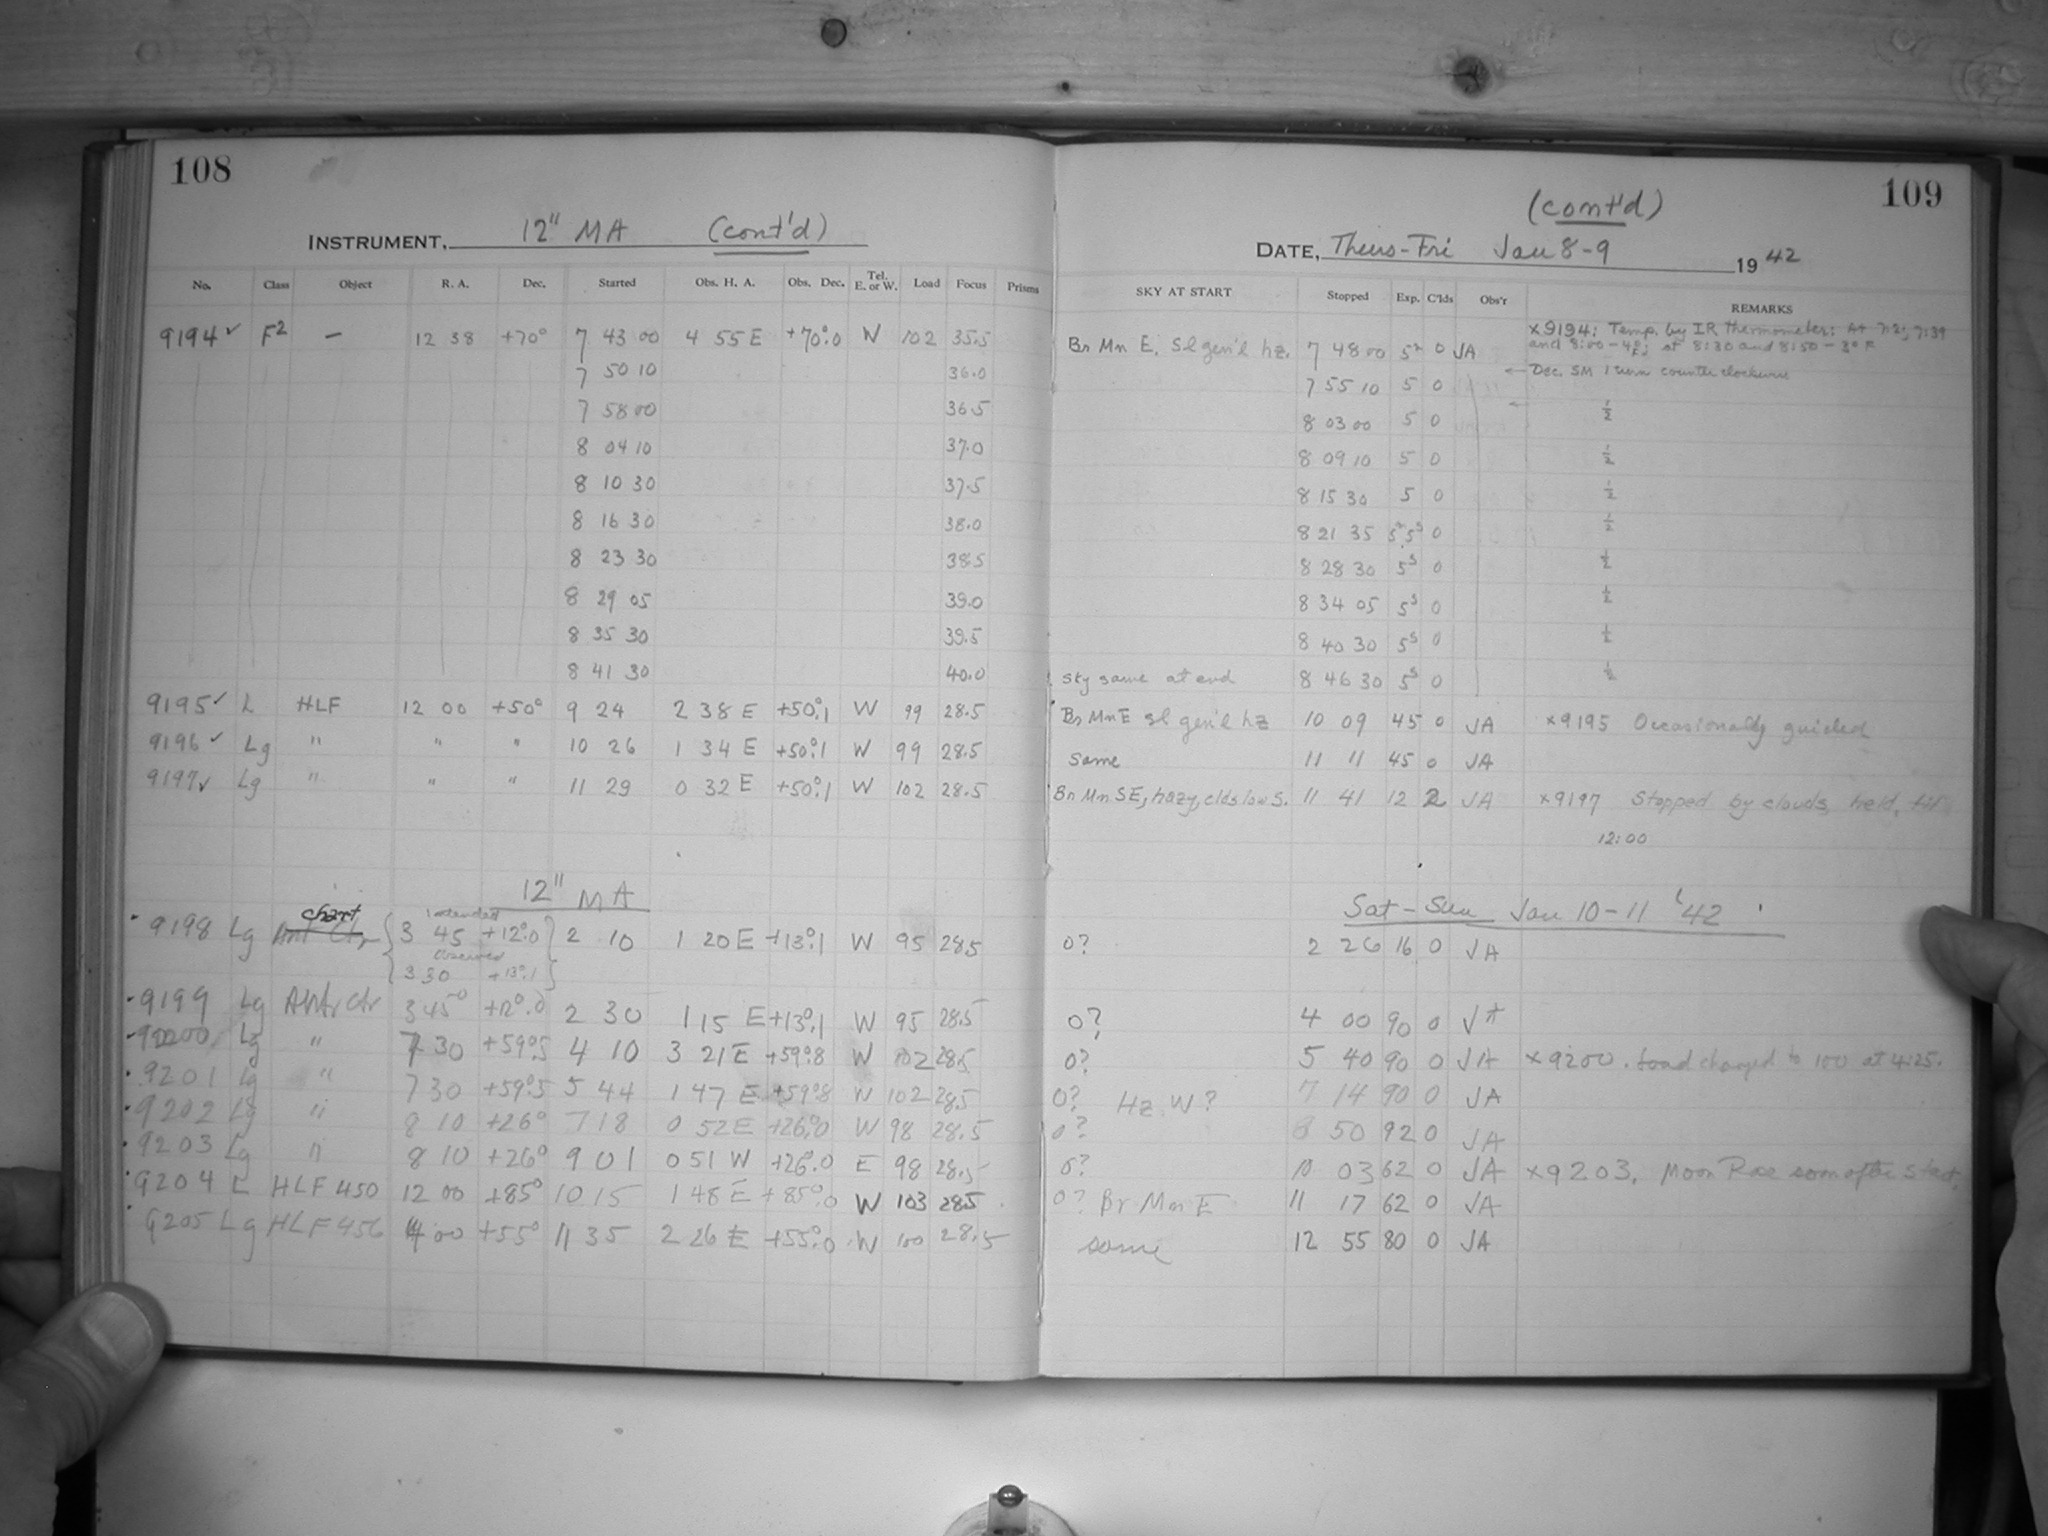 108
INSTRUMENT, 12" MA (cont'd)
No. Class Object R. A. Dec. Started Obs. H. A. Obs. Dec. Tel. E. or W. Load Focus Prisms
9194✓ F² — 12 38 +70° 7 43 00 4 55 E +70°.0 W 102 35.5
7 50 10 36.0
7 58 00 36.5
8 04 10 37.0
8 10 30 37.5
8 16 30 38.0
8 23 30 38.5
8 29 05 39.0
8 35 30 39.5
8 41 30 40.0
9195✓ L HLF 12 00 +50° 9 24 2 38 E +50°.1 W 99 28.5
9196✓ Lg " " " 10 26 1 34 E +50°.1 W 99 28.5
9197✓ Lg " " " 11 29 0 32 E +50°.1 W 102 28.5
12" MA
chart intended
9198 Lg 3 45 +12°.0 2 10 1 20 E +13°.1 W 95 28.5
observed
3 30 +13°.1
9199 Lg Anti Ctr 3 45 +12°.0 2 30 1 15 E +13°.1 W 95 28.5
9200 Lg " 7 30 +59°.5 4 10 3 21 E +59°.8 W 102 28.5
9201 Lg " 7 30 +59°.5 5 44 1 47 E +59°.8 W 102 28.5
9202 Lg " 8 10 +26° 7 18 0 52 E +26°.0 W 98 28.5
9203 Lg " 8 10 +26° 9 01 0 51 W +26°.0 E 98 28.5
9204 L HLF 450 12 00 +85° 10 15 1 48 E +85°.0 W 103 28.5
9205 Lg HLF 456 00 +55° 11 35 2 26 E +55°.0 W 100 28.5
109
(cont'd)
DATE, Thurs-Fri Jan 8-9 1942
SKY AT START Stopped Exp. C'lds Obs'r REMARKS
x9194: Temp. by IR thermometer: At 7:39
Br Mn E. Sl gen'l hz. 7 48 00 5ᵐ 0 JA and 8:00 -4°F; at 8:30 and 8:50 -3°F
← Dec. SM 1 turn counter clockwise
7 55 10 5 0
8 03 00 5 0 ← ½
8 09 10 5 0 ½
8 15 30 5 0 ½
8 21 35 5ᵐ5ˢ 0 ½
8 28 30 5 0 ½
8 34 05 5 0 ½
8 40 30 5 0 ½
sky same at end 8 46 30 5 0 ½
Br Mn E sl gen'l hz 10 09 45 0 JA x9195 Occasionally guided
same 11 11 45 0 JA
Br Mn SE, hazy, clds low S. 11 41 12 2 JA x9197 Stopped by clouds, held, till
12:00
Sat-Sun Jan 10-11 '42
0? 2 26 16 0 JA
0? 4 00 90 0 JA
0? 5 40 90 0 JA x9200. Load changed to 100 at 4:25.
0? Hz W? 7 14 90 0 JA
0? 8 50 92 0 JA
0? 10 03 62 0 JA x9203. Moon Rose soon after start.
0? Br Mn E 11 17 62 0 JA
same 12 55 80 0 JA